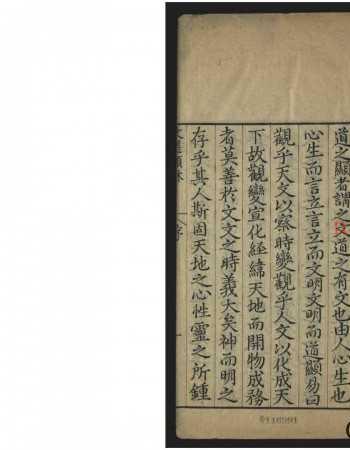 道之顯者謂之文道之有文也由人心生也
心生而言立言立而文明文明而道顯易曰
觀乎天文以察時變觀乎人文以化成天
下故觀變宣化經緯天地而開物成務
者莫善於文文之時義大矣神而明之
存乎其人斯固天地之心性靈之所鍾
序